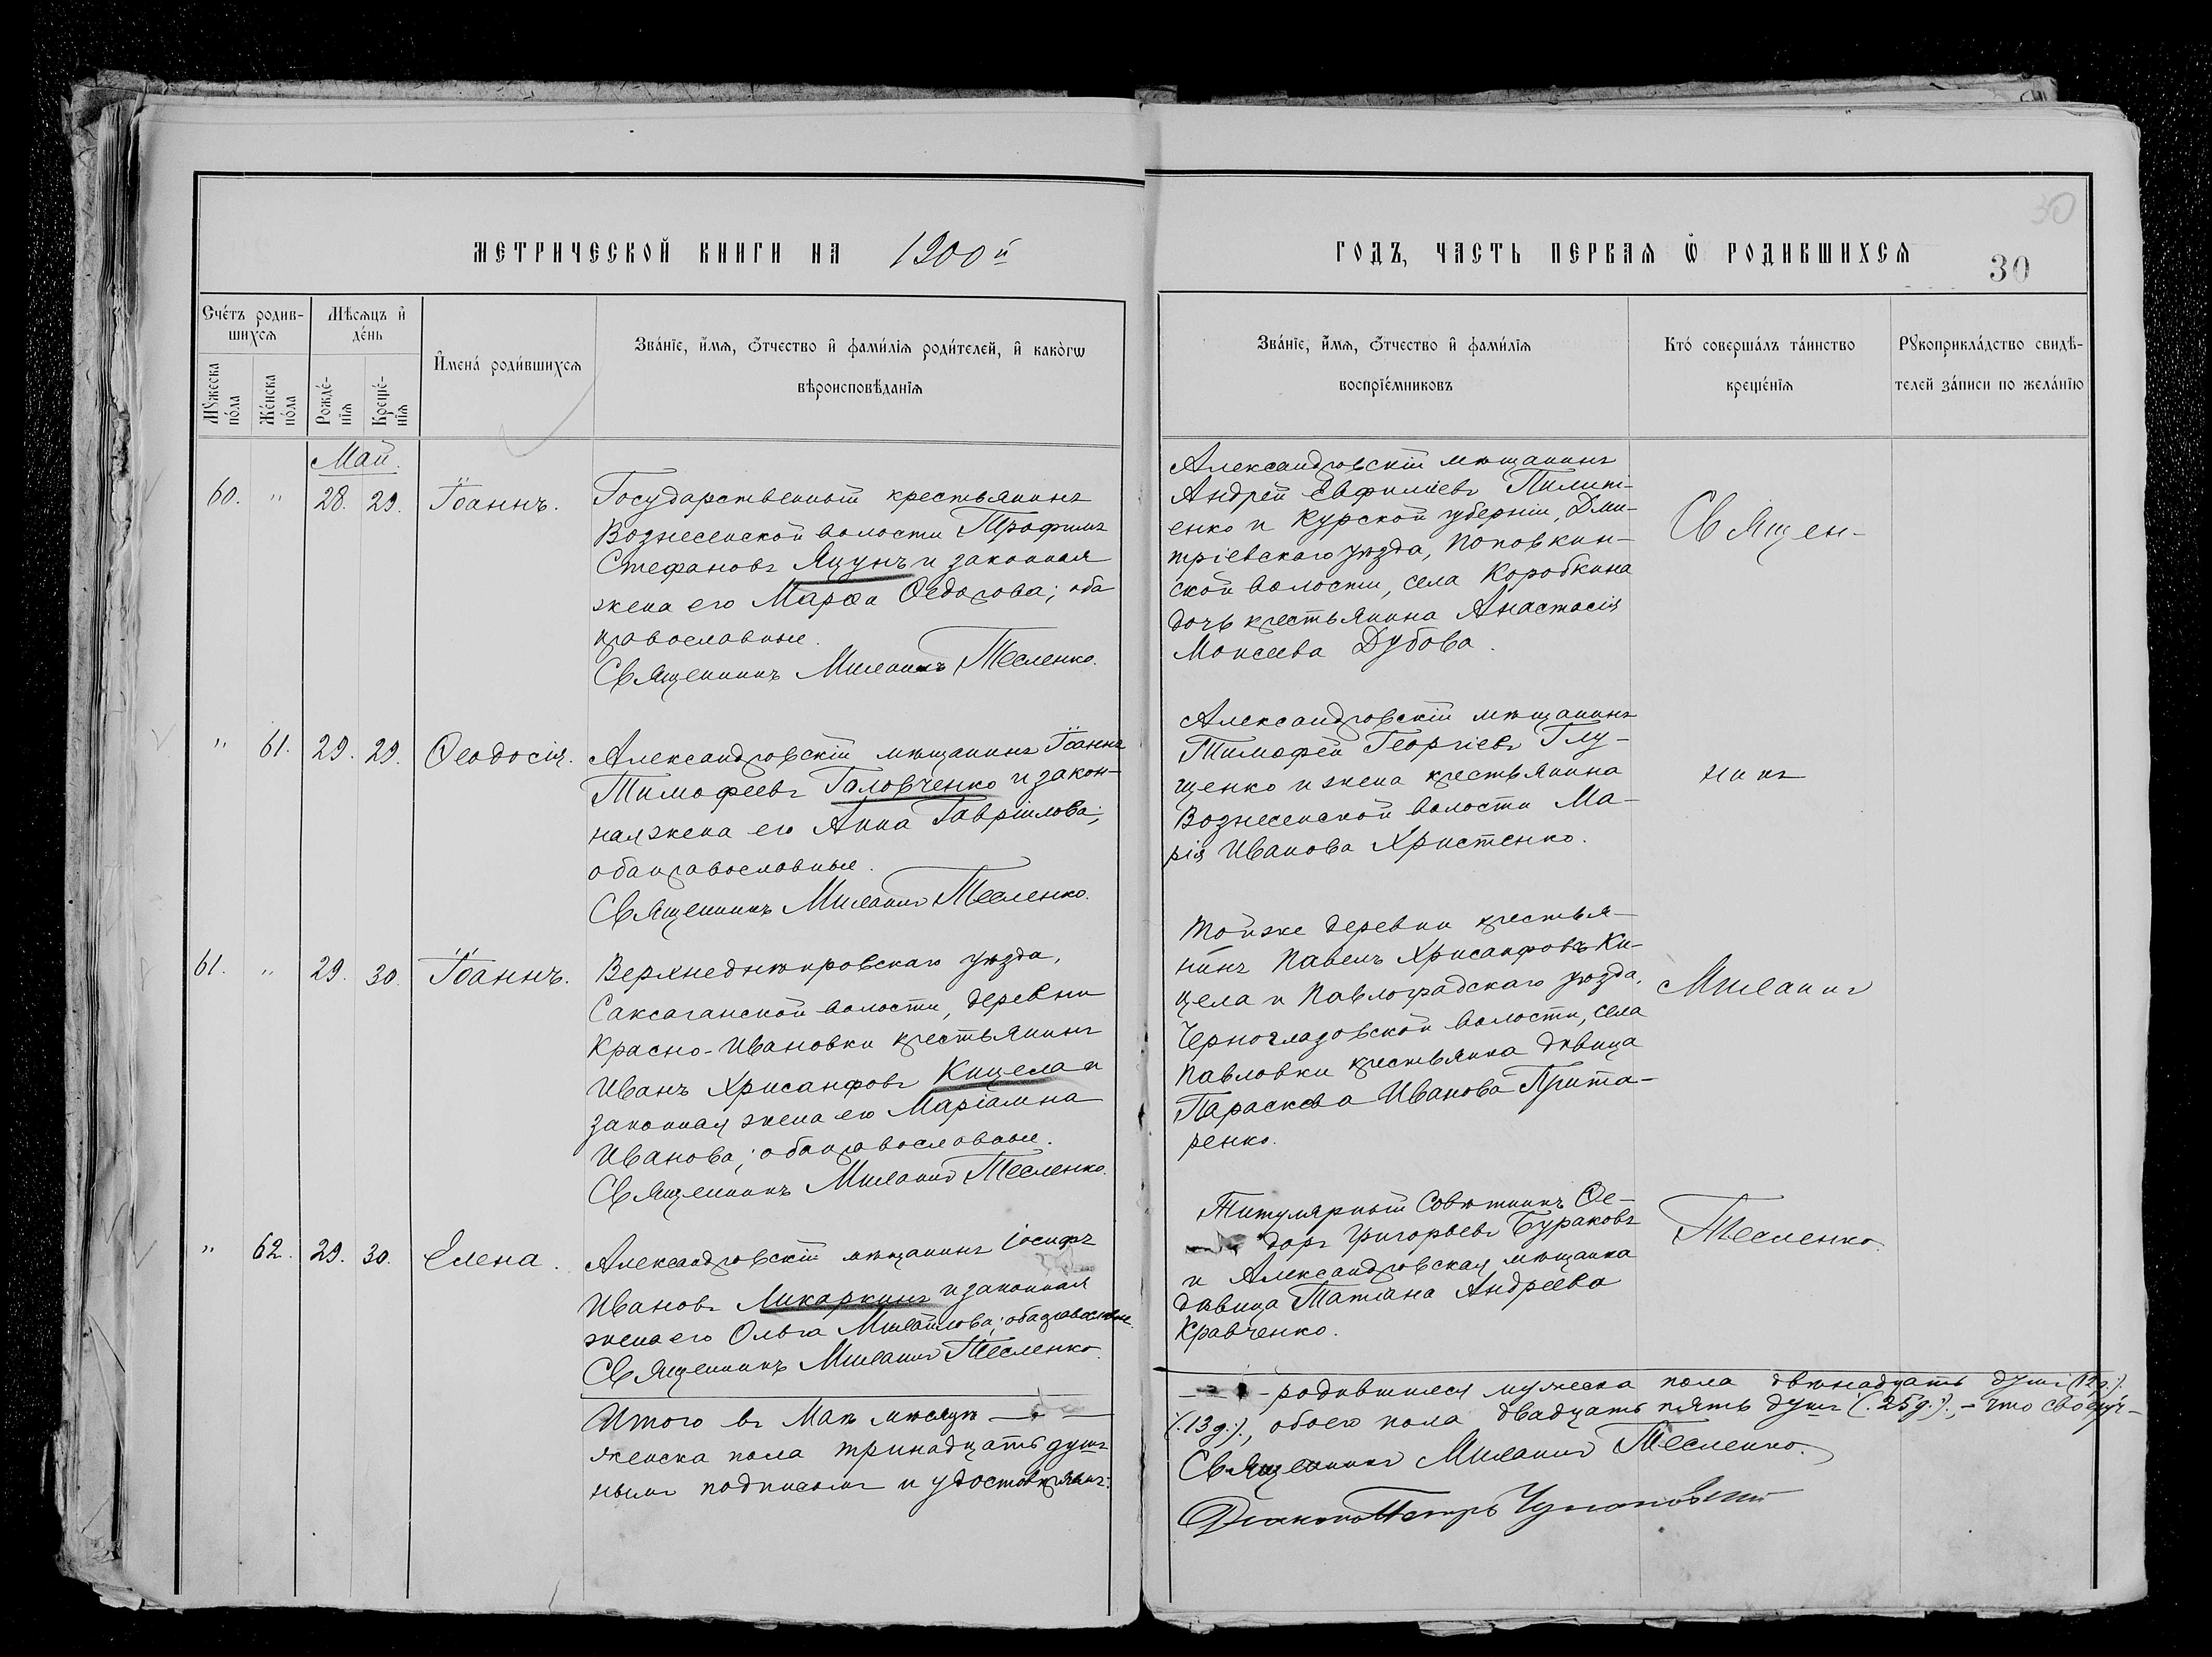 30
МЕТРИЧЕСКОЙ КНИГИ НА 1900й
ГОДЪ, ЧАСТЬ ПЕРВАЯ Ѡ РОДИВШИХСЯ
30
Счётъ родив-
шихся
Мѣсяцъ и
день
Мужеска
пола
Женска
пола
Рожде-
нія
Креще-
нія
Имена родившихся
Званіе, имя, отчество и фамилія родителей, и какогѡ
вѣроисповѣданія
Званіе, имя, отчество и фамилія
воспріемниковъ
Кто совершалъ таинство
крещенія
Рукоприкладство свидѣ-
телей записи по желанію
Май.
60. " 28. 29. Іоаннъ.
Государственный крестьянинъ
Вознесенской волости Трофимъ
Стефановъ Яцунъ и законная
жена его Марѳа Ѳедорова; оба
православные.
Священникъ Михаилъ Тесленко.
Александровскій мѣщанинъ
Андрей Евфиміевъ Пилип-
енко и Курской губерніи, Дми-
тріевскаго уѣзда, Поповкин-
ской волости, села Коробкина
дочь крестьянина Анастасія
Моисеева Дубова.
Священ-
" 61. 29. 29. Ѳеодосія.
Александровскій мѣщанинъ Іоаннъ
Тимофеевъ Головченко и закон-
ная жена его Анна Гавріилова;
оба православные.
Священникъ Михаилъ Тесленко.
Александровскій мѣщанинъ
Тимофей Георгіевъ Глу-
щенко и жена крестьянина
Вознесенской волости Ма-
рія Иванова Христенко.
никъ
61. " 29. 30. Іоаннъ.
Верхнеднѣпровскаго уѣзда,
Саксаганской волости, деревни
Красно-Ивановки крестьянинъ
Иванъ Хрисанфовъ Кицела и
законная жена его Маріамна
Иванова; оба православные.
Священникъ Михаилъ Тесленко.
Той же деревни крестья-
нинъ Павелъ Хрисанфовъ Ки-
цела и Павлоградскаго уѣзда,
Черноглазовской волости, села
Павловки крестьянка дѣвица
Параскева Иванова Прита-
ренко.
Михаилъ
" 62. 29. 30. Елена.
Александровскій мѣщанинъ Іосифъ
Ивановъ Микаркинъ и законная
жена его Ольга Михайлова; оба православные.
Священникъ Михаилъ Тесленко.
Титулярный Совѣтникъ Ѳе-
доръ Григорьевъ Бураковъ
и Александровская мѣщанка
дѣвица Татіана Андреева
Кравченко.
Тесленко.
Итого въ Маѣ мѣсяцѣ — родившихся мужеска пола двѣнадцать душъ (12 д.)
женска пола тринадцать душъ (13 д.), обоего пола двадцать пять душъ (25 д.), – что своеруч-
нымъ подписомъ и удостовѣряемъ:
Священникъ Михаилъ Тесленко.
Петръ